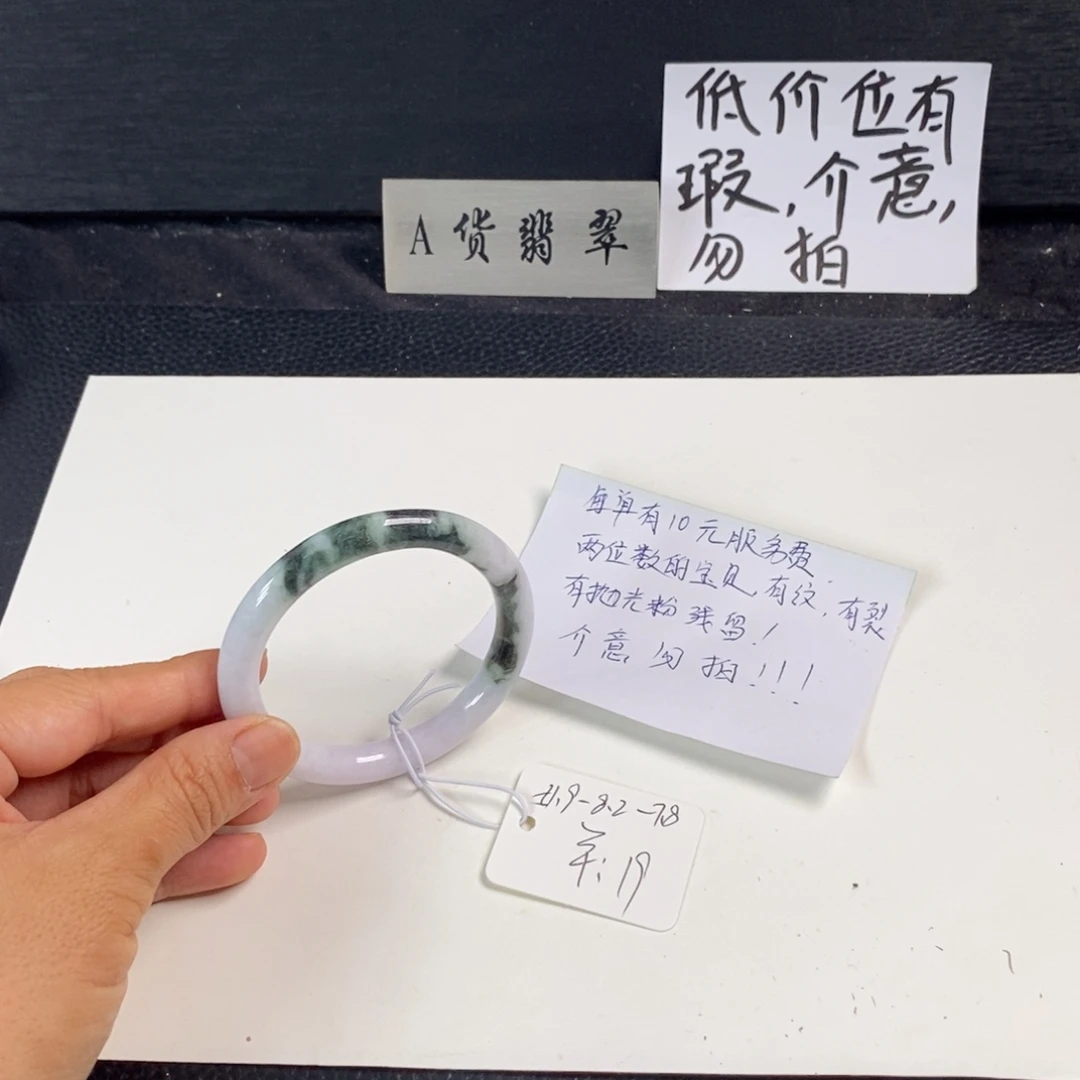 A货翡翠
低价位有
瑕,介意,
勿拍
每单有10元服务费
两位数的宝贝,有纹,有裂
有抛光粉残留!
介意勿拍!!!
-8.2-7.8
19